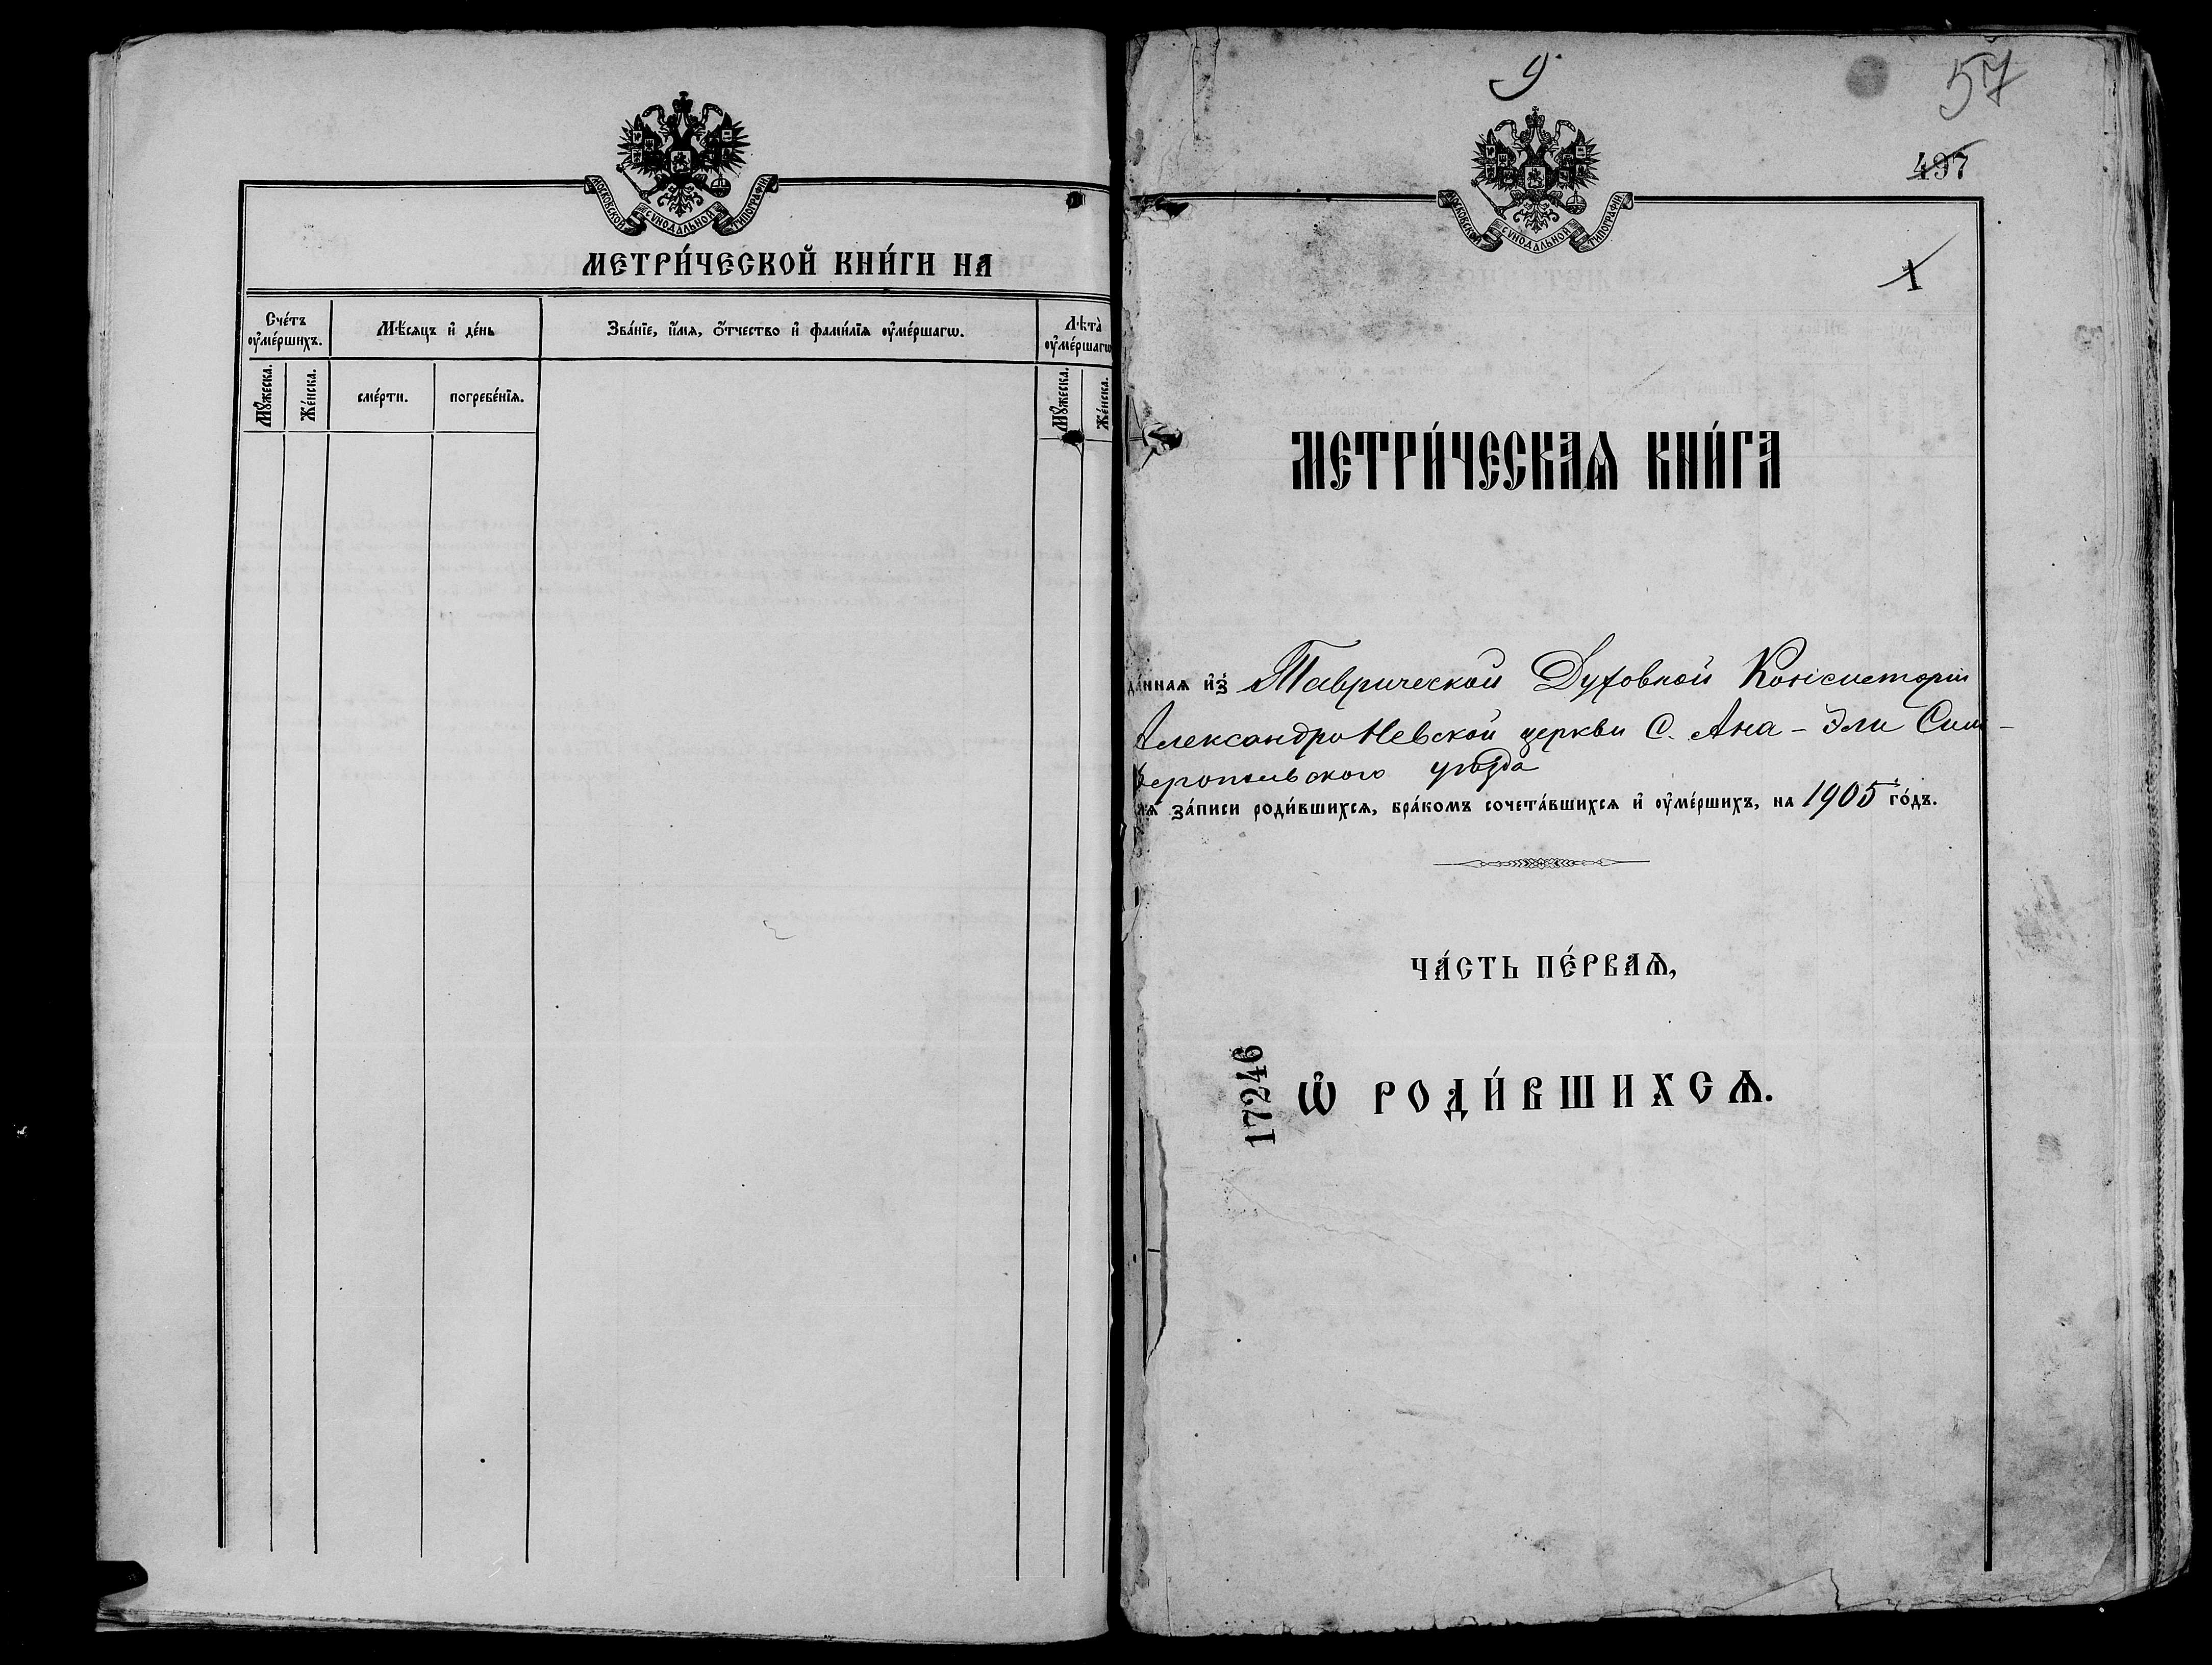 МОСКОВСКОЙ СѴНОДАЛЬНОЙ ТИПОГРАФІИ
МЕТРИ́ЧЕСКОЙ КНИ́ГИ НА
Сче́тъ ᲂу҆ме́ршихъ.
Мѣ́сяцъ и҆ де́нь
Зва́нїе, и҆́мя, ѻ҆́тчество и҆ фами́лїя ᲂу҆ме́ршагѡ.
Лѣта̀ ᲂу҆ме́ршагѡ
Мꙋ́жеска.
Же́нска.
сме́рти.
погребе́нїя.
Мꙋ́жеска.
Же́нска.
9
57
497
МОСКОВСКОЙ СѴНОДАЛЬНОЙ ТИПОГРАФІИ
1
МЕТРИ́ЧЕСКАѦ КНИ́ГА
да́нная и҆з̾ Таврической Духовной Консисторіи
Александро Невской церкви с. Ана-Эли Сим-
феропольского уѣзда
для за́писи роди́вшихся, бра́комъ сочета́вшихся и҆ ᲂу҆ме́ршихъ, на 1905 го́дъ.
ЧА́СТЬ ПЕ́РВАѦ,
Ѡ҆ РОДИ́ВШИХСѦ.
17246